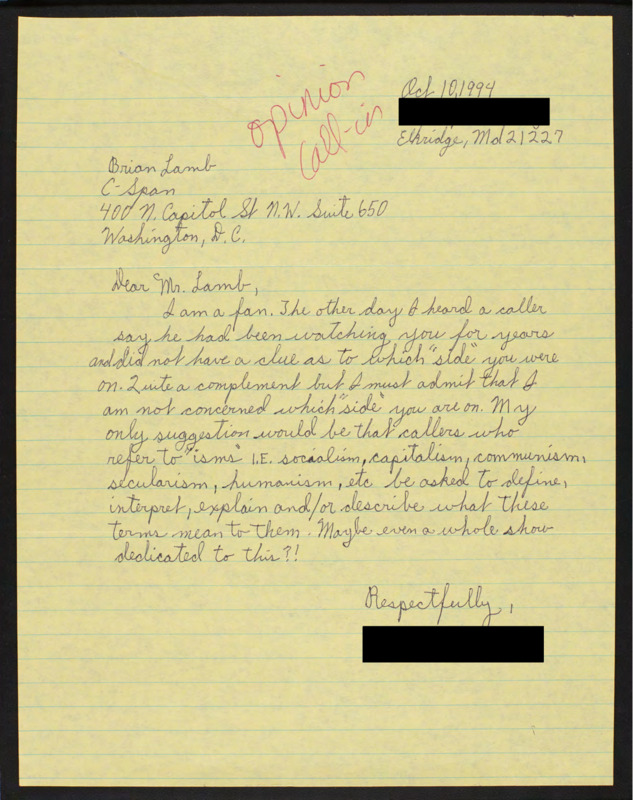 opinion
call-in
Oct 10, 1994
Elkridge, Md 21227
Brian Lamb
C-Span
400 N. Capitol St N.W. Suite 650
Washington, D.C.
Dear Mr. Lamb,
I am a fan. The other day I heard a caller
say he had been watching you for years
and did not have a clue as to which "side" you were
on. Quite a complement but I must admit that I
am not concerned which "side" you are on. My
only suggestion would be that callers who
refer to "isms I.E. socialism, capitalism, communism,
secularism, humanism, etc be asked to define,
interpret, explain and/or describe what these
terms mean to them. Maybe even a whole show
dedicated to this?!
Respectfully,